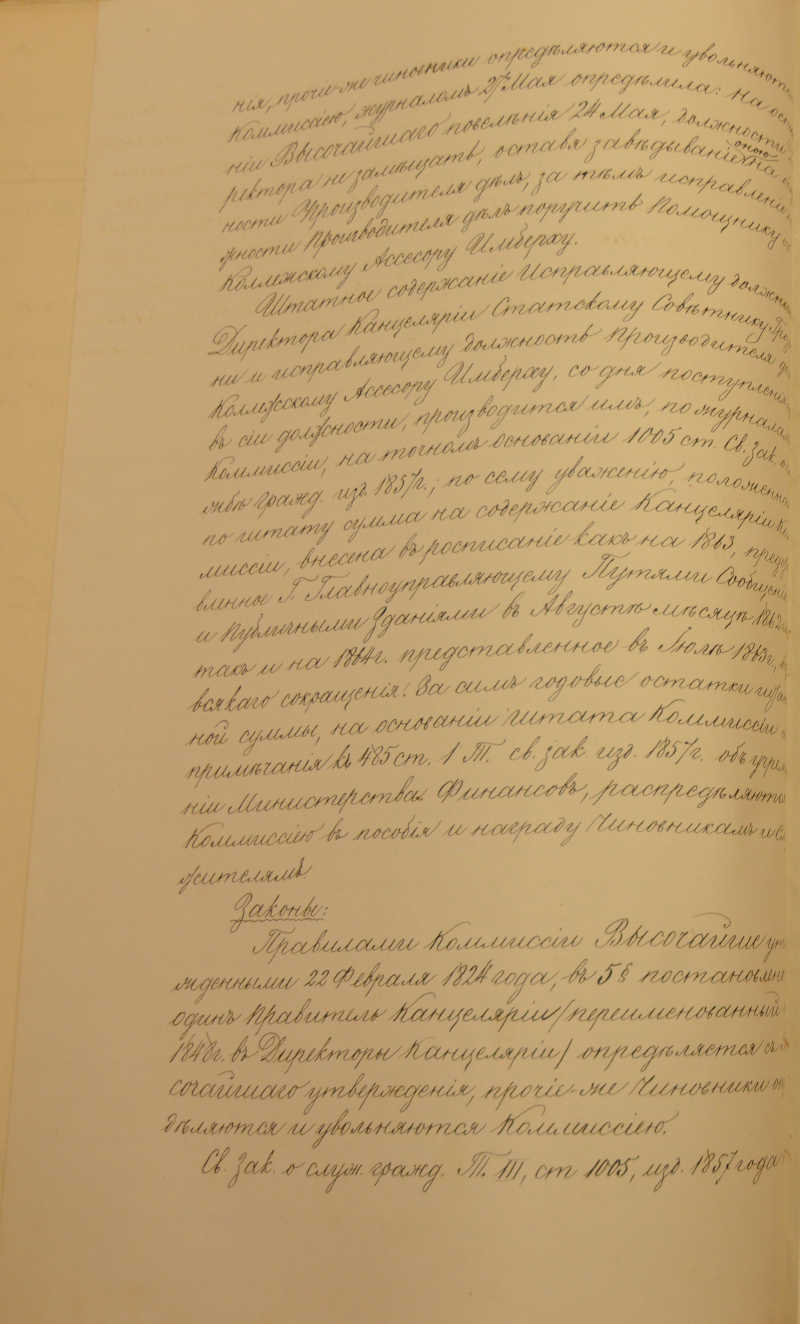 нія, прочіе же чиновники опредѣляются и увольняют
Коммиссіею, журналомъ 27 Мая опредѣлила: на осн
ніи Высочайшаго повелѣнія 24 Мая, должности
ректора не замѣщать, оставя завѣдываніе оною на
ности Производителя дѣлъ, за тѣмъ исправлені
жности Производителя дѣлъ поручить Помощнику
Коллежскому Ассесору Имберху.
Штатное содержаніе Исправляющему должн
Директора Канцеляріи Статскому Совѣтнику
ни и исправляющему должность Производителя
Коллежскому Ассесору Имберху, со дня поступленія
въ сіи должности, производится имъ, по журнала
Коммиссіи, на точномъ основаніи 1005 ст. Св. Зак. о
жбѣ гражд. изд. 1857 г.; по сему уваженію, положенна
по штату сумма на содержаніе Канцеляріи Ко
миссіи, внесена въ росписаніе какъ на 1863, предс
вленное Г. Главноуправляющему Путями Сообщен
и Публичными Зданіями въ Августѣ мѣсяцѣ 1862
такъ и на 1864 г. представленное въ Іюлѣ 1863 г.,
всякаго сокращенія. За симъ годовые остатки штат
ной суммы, на основаніи штата Коммиссіи
примѣчанія къ 485 ст. 1 Т. св. зак. изд. 1857 г. объ учреж
ніи Министерства Финансовъ, распредѣляютс
Коммиссіею въ пособія и награду Чиновникамъ и Сл
жителямъ
Законы:
Правилами Коммиссіи Высочайше ут
жденными 22 Февраля 1824 года, въ 5 § постановлен
одинъ Правитель Канцеляріи /переименованный
1848 г. въ Директоры Канцеляріи/ опредѣляется съ В
сочайшаго утвержденія, прочіе же Чиновники оп
дѣляются и увольняются Коммиссіею.
Св. Зак. о служ. гражд. Т. III, ст 1005, изд. 1857 года